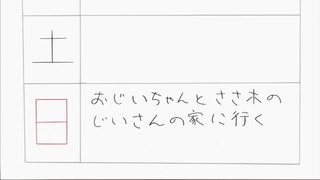 土
日
おじいちゃんとささ木の
じいさんの家に行く